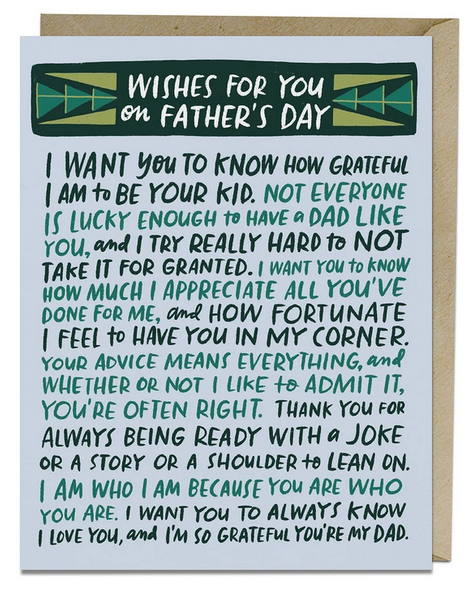 WISHES FOR YOU
on FATHER'S DAY
I WANT you TO KNOW HOW GRATEFUL
I AM to BE YOUR KID. NOT EVERYONE
IS LUCKY ENOUGH to HAVE a DAD LIKE
YOU, and I TRY REALLY HARD to NOT
TAKE IT FOR GRANTED. I WANT YOU to KNOW
HOW MUCH I APPRECIATE ALL YOU'VE
DONE FOR ME, and HOW FORTUNATE
I FEEL to HAVE YOU IN MY CORNER.
YOUR ADVICE MEANS EVERYTHING, and
WHETHER OR NOT I LIKE to ADMIT IT,
YOU'RE OFTEN RIGHT. THANK YOU FOR
ALWAYS BEING READY WITH a JOKE
OR A STORY OR A SHOULDER to LEAN ON.
I AM WHO I AM BECAUSE YOU ARE WHO
YOU ARE. I WANT YOU TO ALWAYS KNOW
I LOVE YOU, and I'M SO GRATEFUL YOU'RE MY DAD.